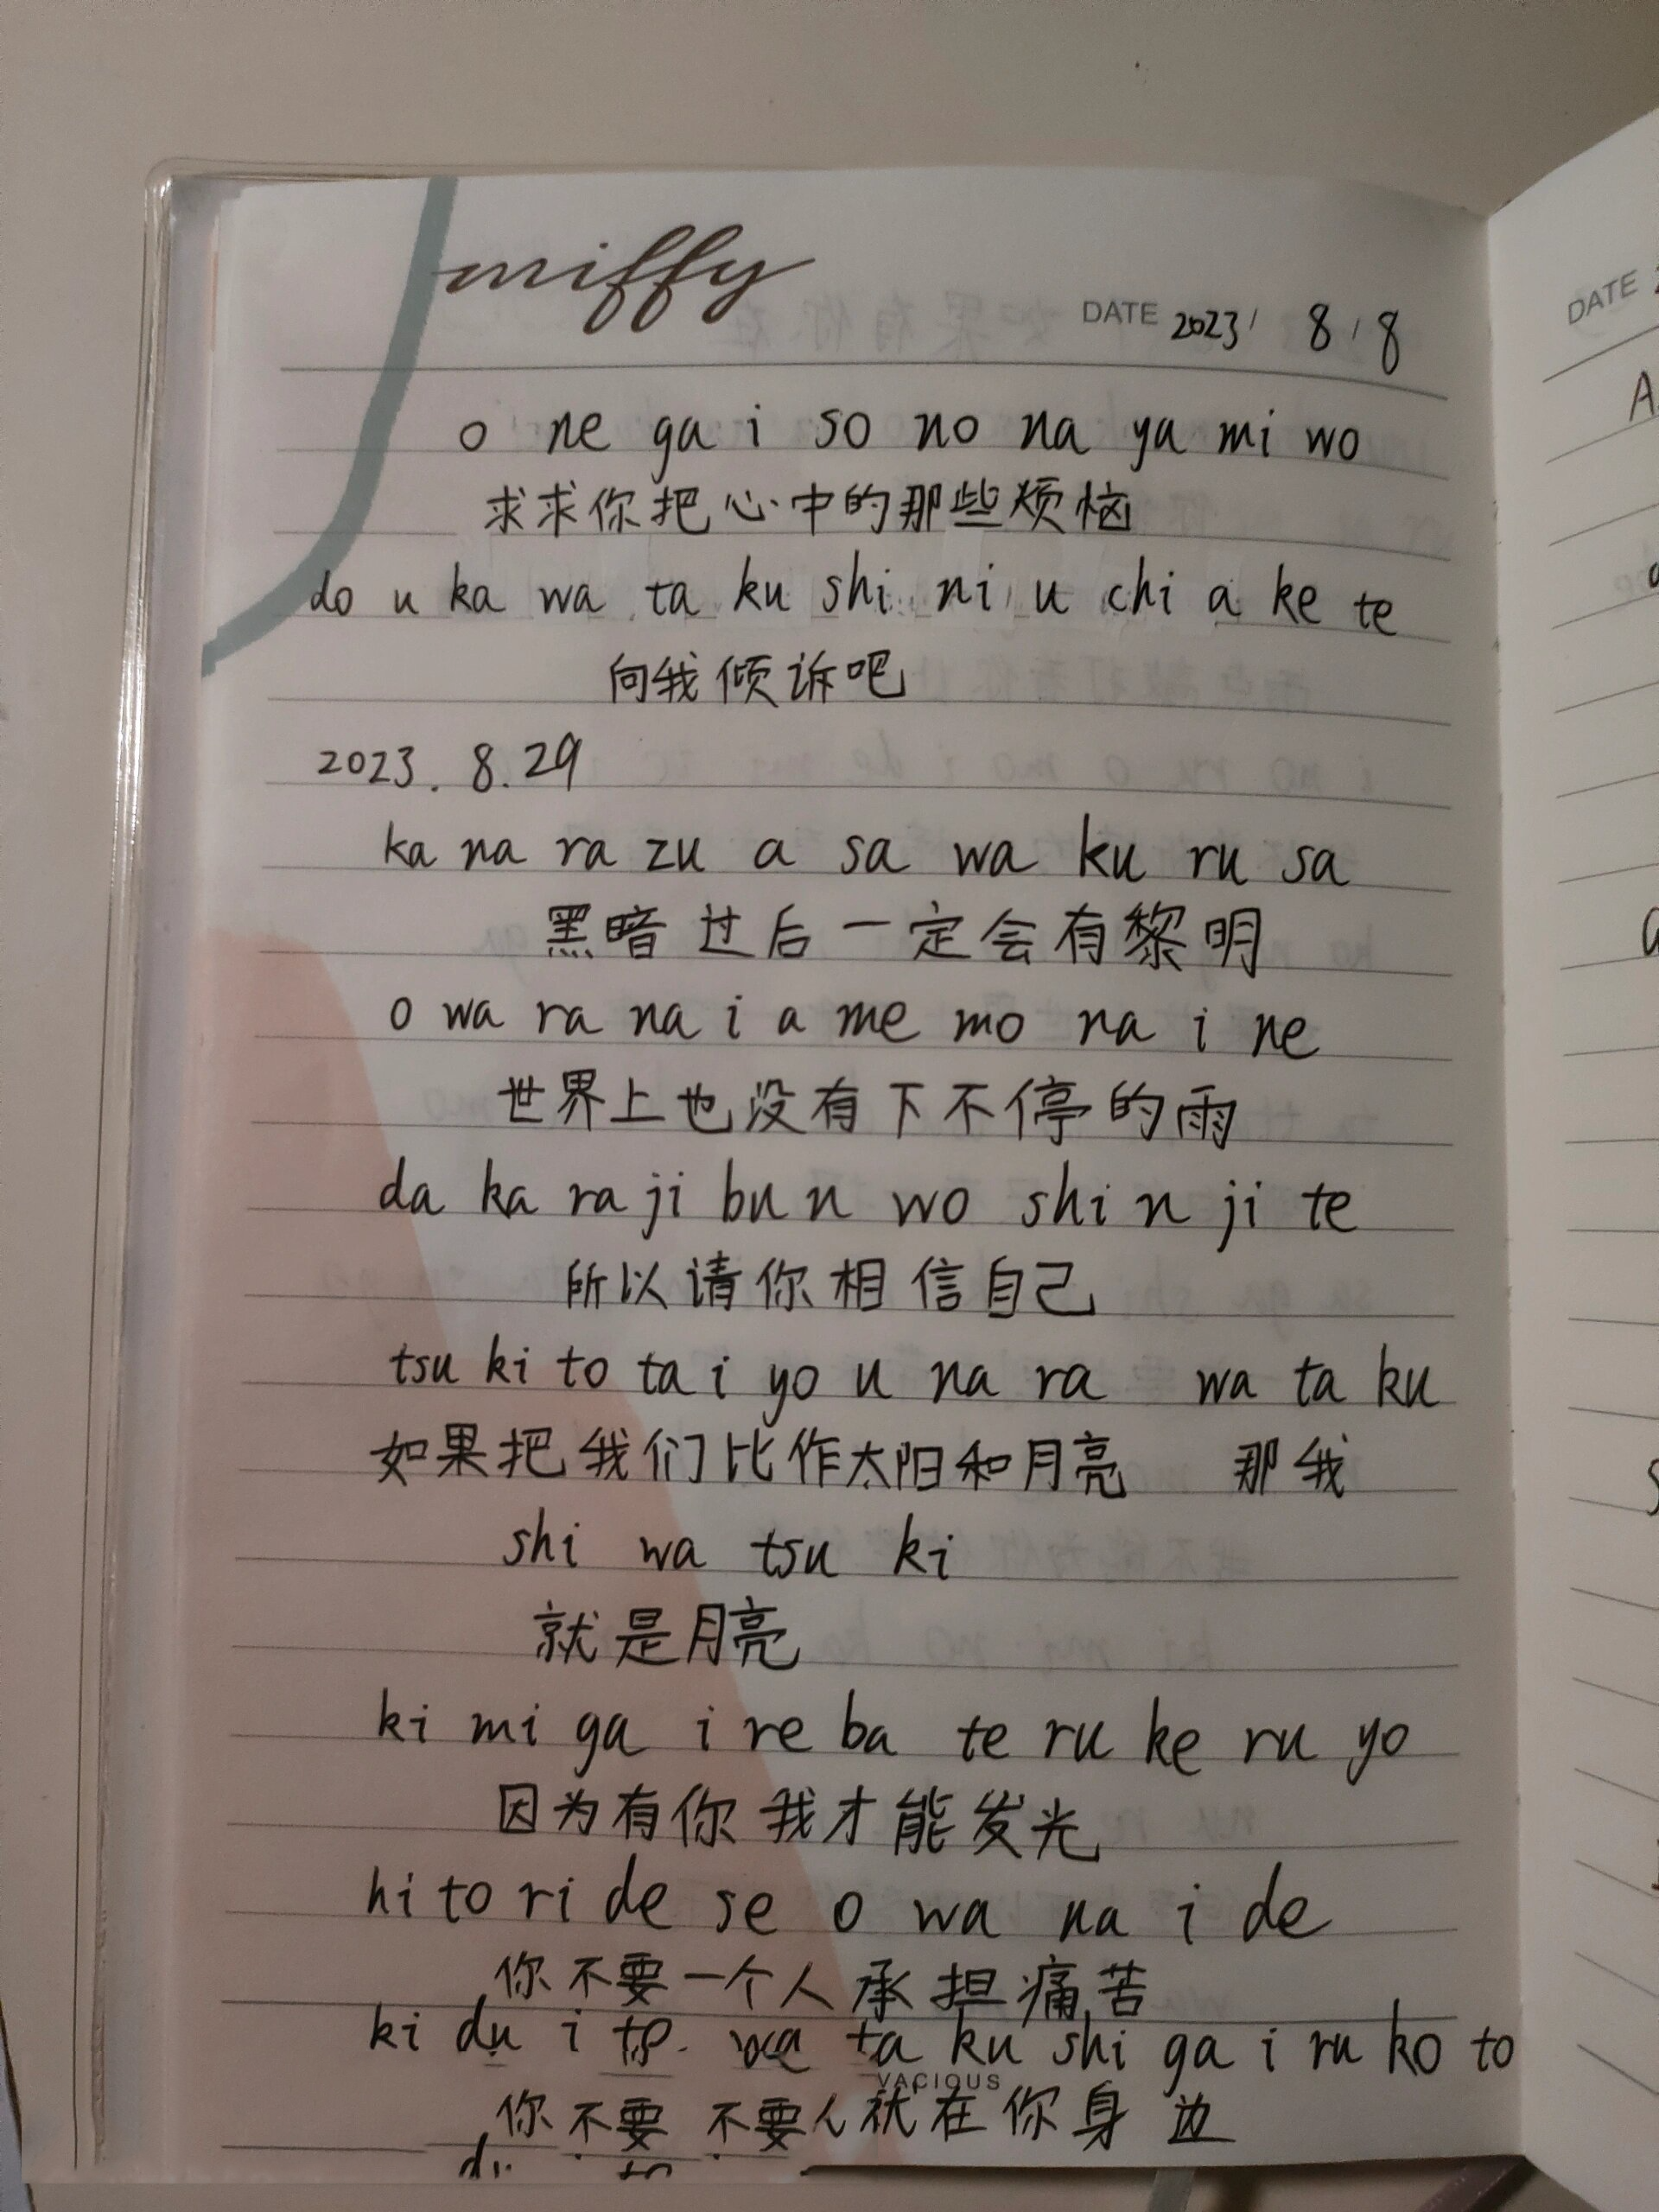 miffy
DATE 2023/ 8/8
o ne ga i so no na ya mi wo
求求你把心中的那些烦恼
do u ka wa ta ku shi ni u chi a ke te
向我倾诉吧
2023.8.29
ka na ra zu a sa wa ku ru sa
黑暗过后一定会有黎明
o wa ra na i a me mo na i ne
世界上也没有下不停的雨
da ka ra ji bu n wo shi n ji te
所以请你相信自己
tsu ki to ta i yo u na ra wa ta ku
如果把我们比作太阳和月亮 那我
shi wa tsu ki
就是月亮
ki mi ga i re ba te ru ke ru yo
因为有你我才能发光
hi to ri de se o wa na i de
你不要一个人承担痛苦
ki du i te wa ta ku shi ga i ru ko to
VACIOUS
你不要 不要 就在你身边
DATE
A